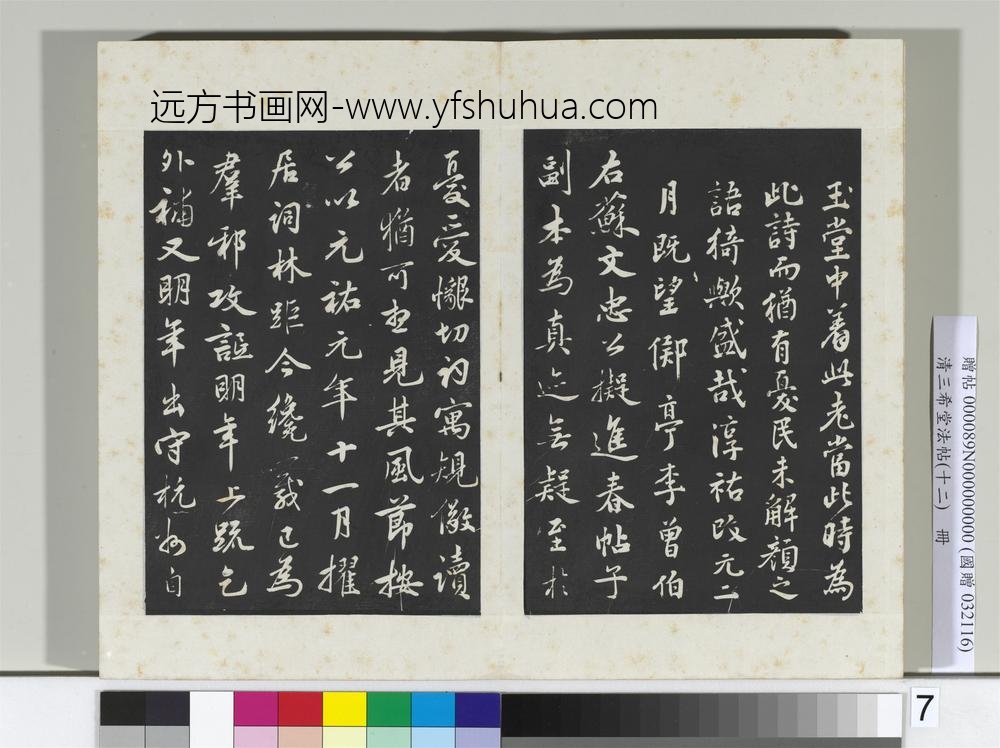 远方书画网-www.yfshuhua.com
玉堂中着此老當此時為
此詩而猶有憂民未解顏之
語猗歟盛哉淳祐改元二
月既望鄮亭李曾伯
右蘇文忠公擬進春帖子
副本為真迹無疑至於
憂愛懇切詞寓規儆讀
者猶可想見其風節按
公以元祐元年十一月擢
居詞林距今纔一載已為
羣邪攻詆明年上疏乞
外補又明年出守杭州自
贈帖 000089N000000000 (國贈 032116)
清三希堂法帖(十二) 冊
7